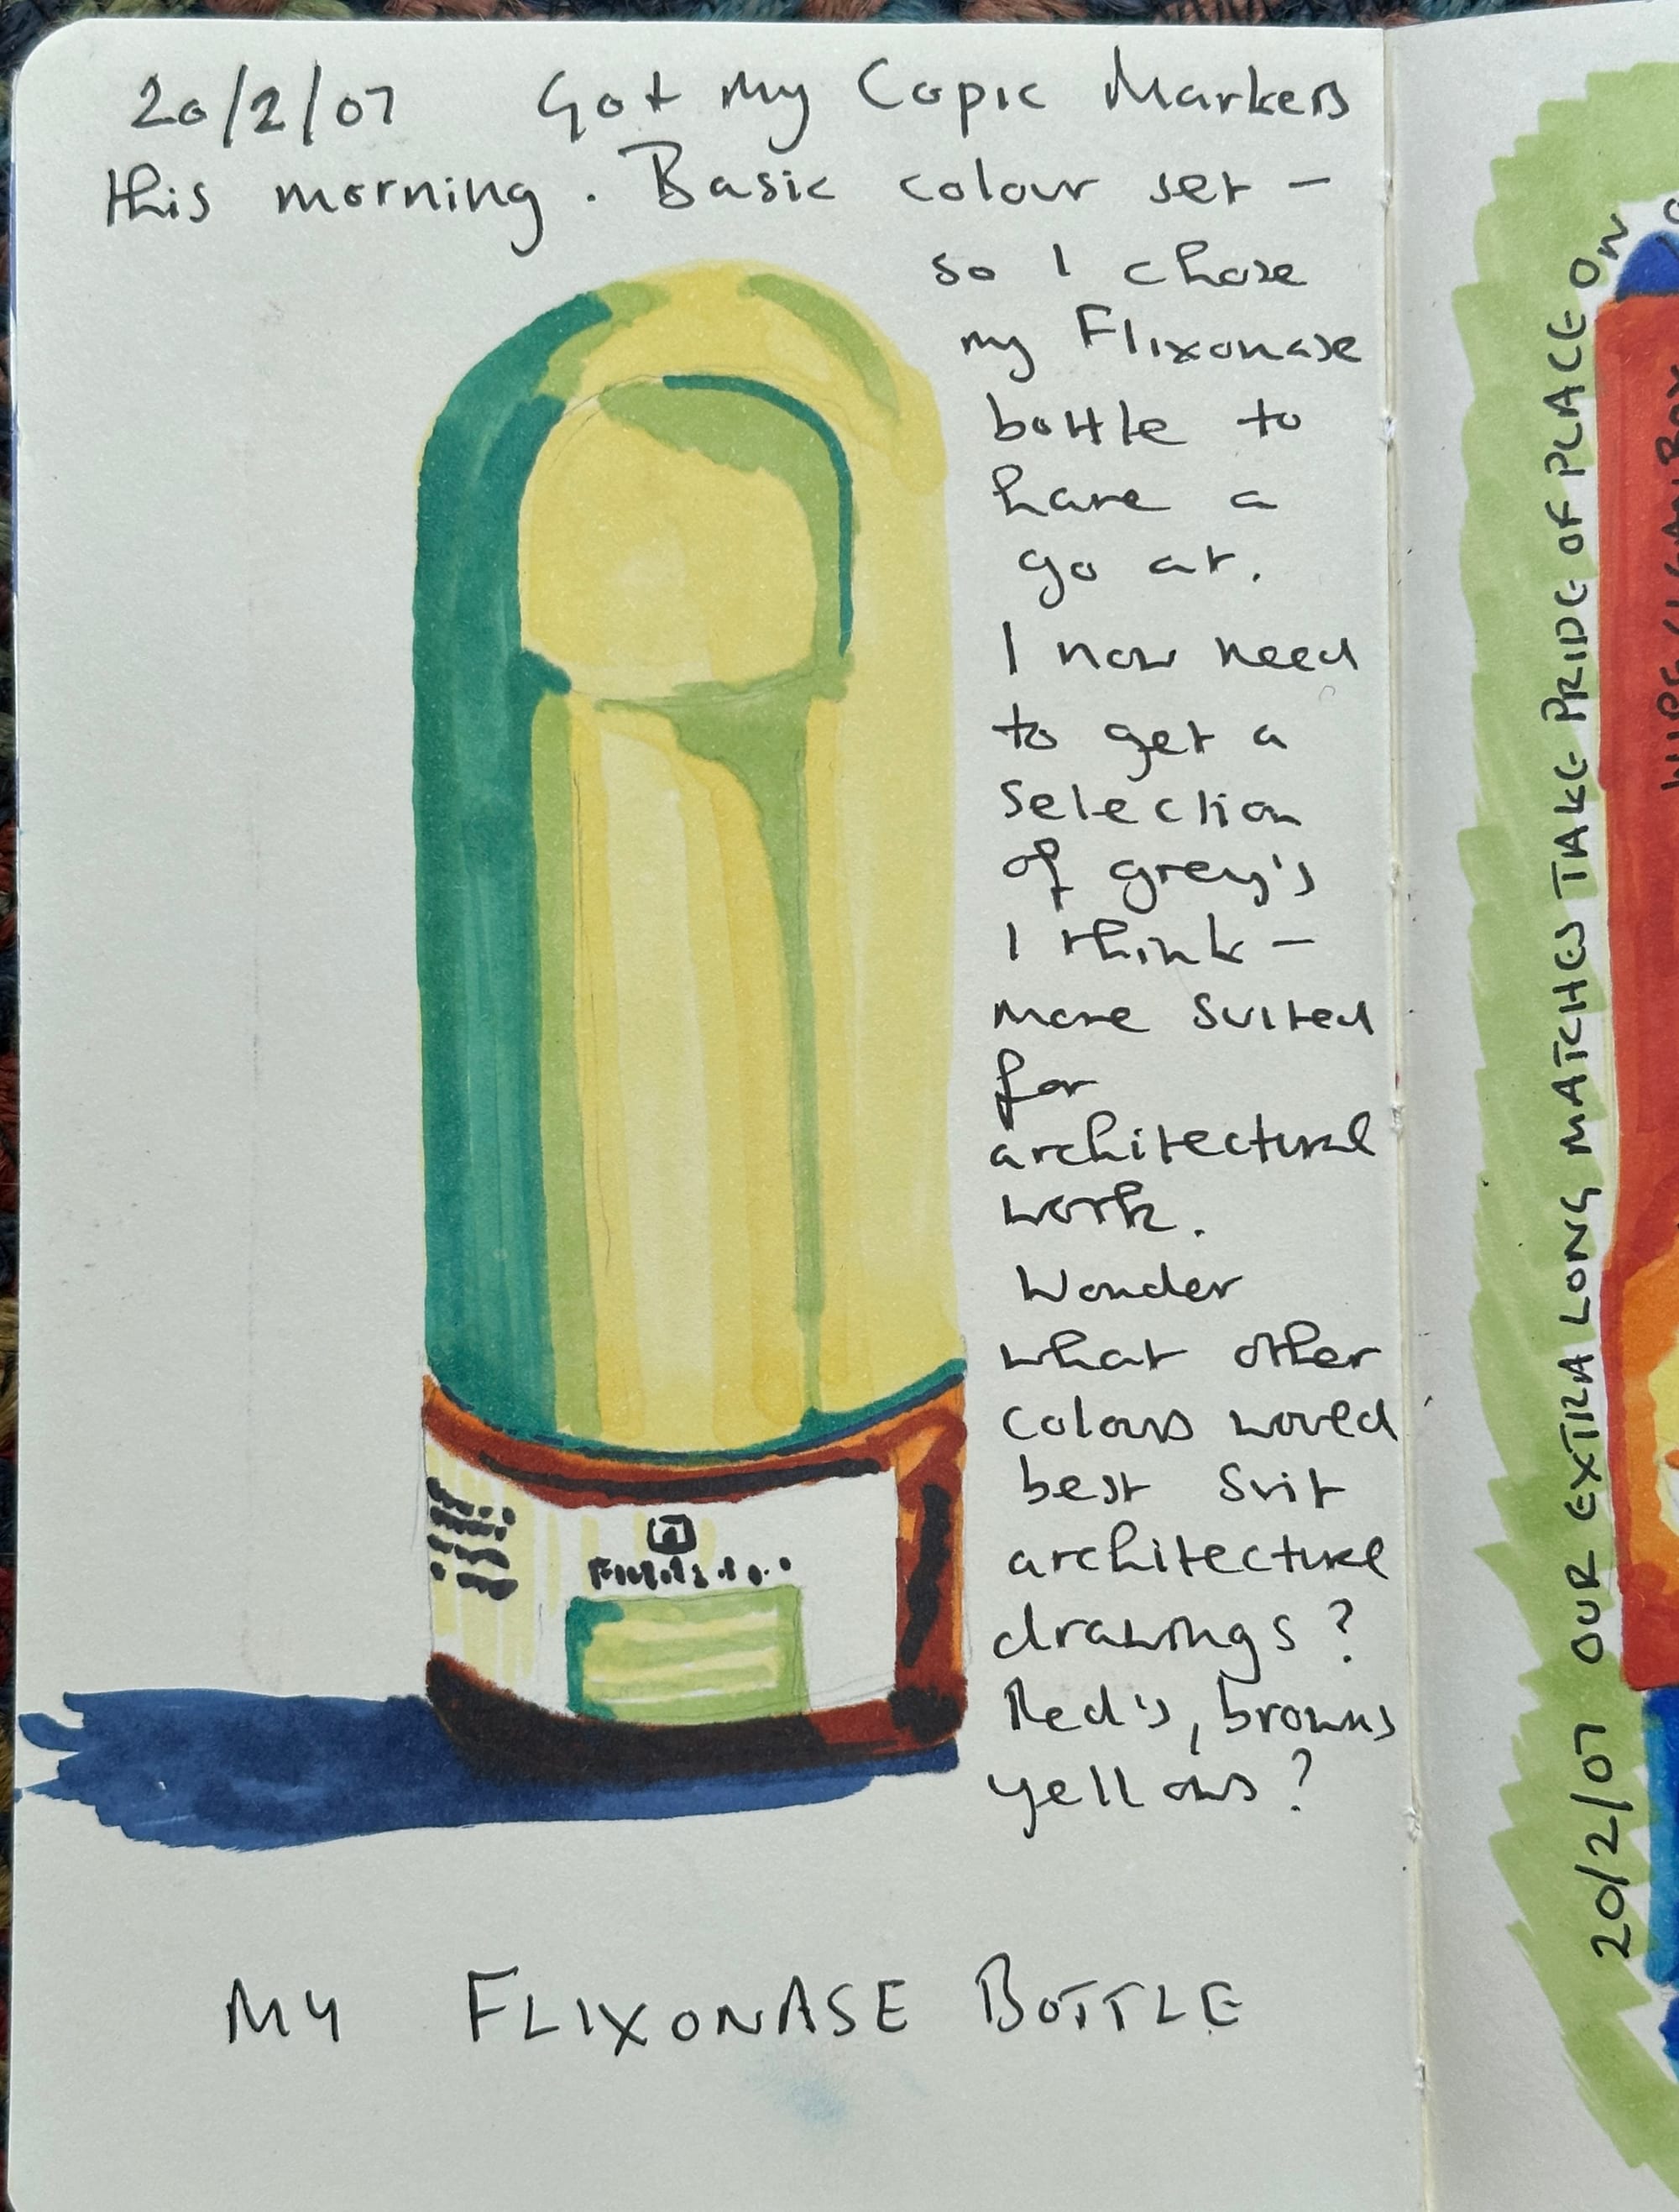 20/2/07 Got my Copic Markers
this morning. Basic colour set –
so I chose
my Flixonase
bottle to
have a
go at.
I now need
to get a
selection
of grey's
I think –
more suited
for
architectural
work.
Wonder
what other
colours would
best suit
architecture
drawings?
Red's, browns
yellows?
MY FLIXONASE BOTTLE
20/2/07 OUR EXTRA LONG MATCHES TAKE PRIDE OF PLACE ON